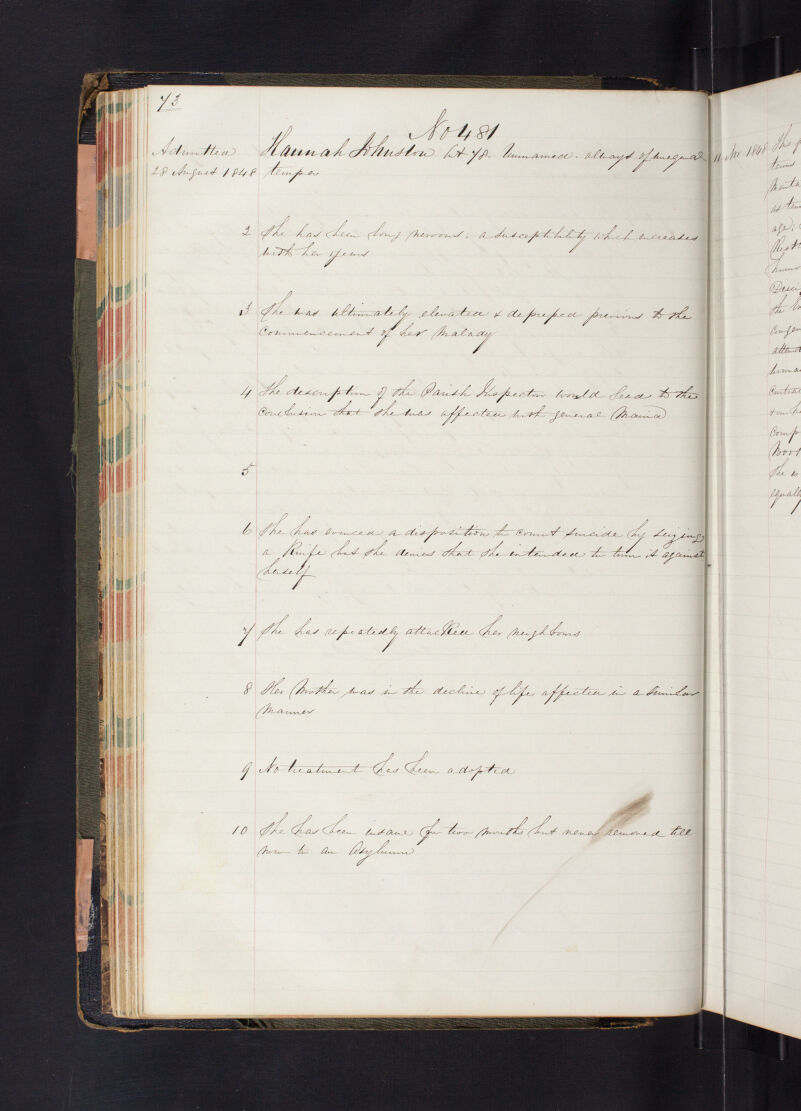 73
No 481
Admitted
28 August 1848
Hannah Johnston aet 78. Unmarried. always of unequal
temper
2 She has been long nervous; a susceptibility which increases
with her years
3 She was ultimately elevated & depressed previous to the
commencement of her Malady
4 The description of the Parish Inspector would lead to the
conclusion that she was affected with general Mania
5
6 She has evinced a disposition to commit suicide by seizing
a Knife but she denies that she intended to turn it against
herself
7 She has repeatedly attacked her neighbours
8 Her Mother was in the decline of life affected in a similar
manner
9 No treatment has been adopted
10 She has been insane for two months but never removed till
now to an Asylum
11 Nov 1848
This
terms
as
age;
the